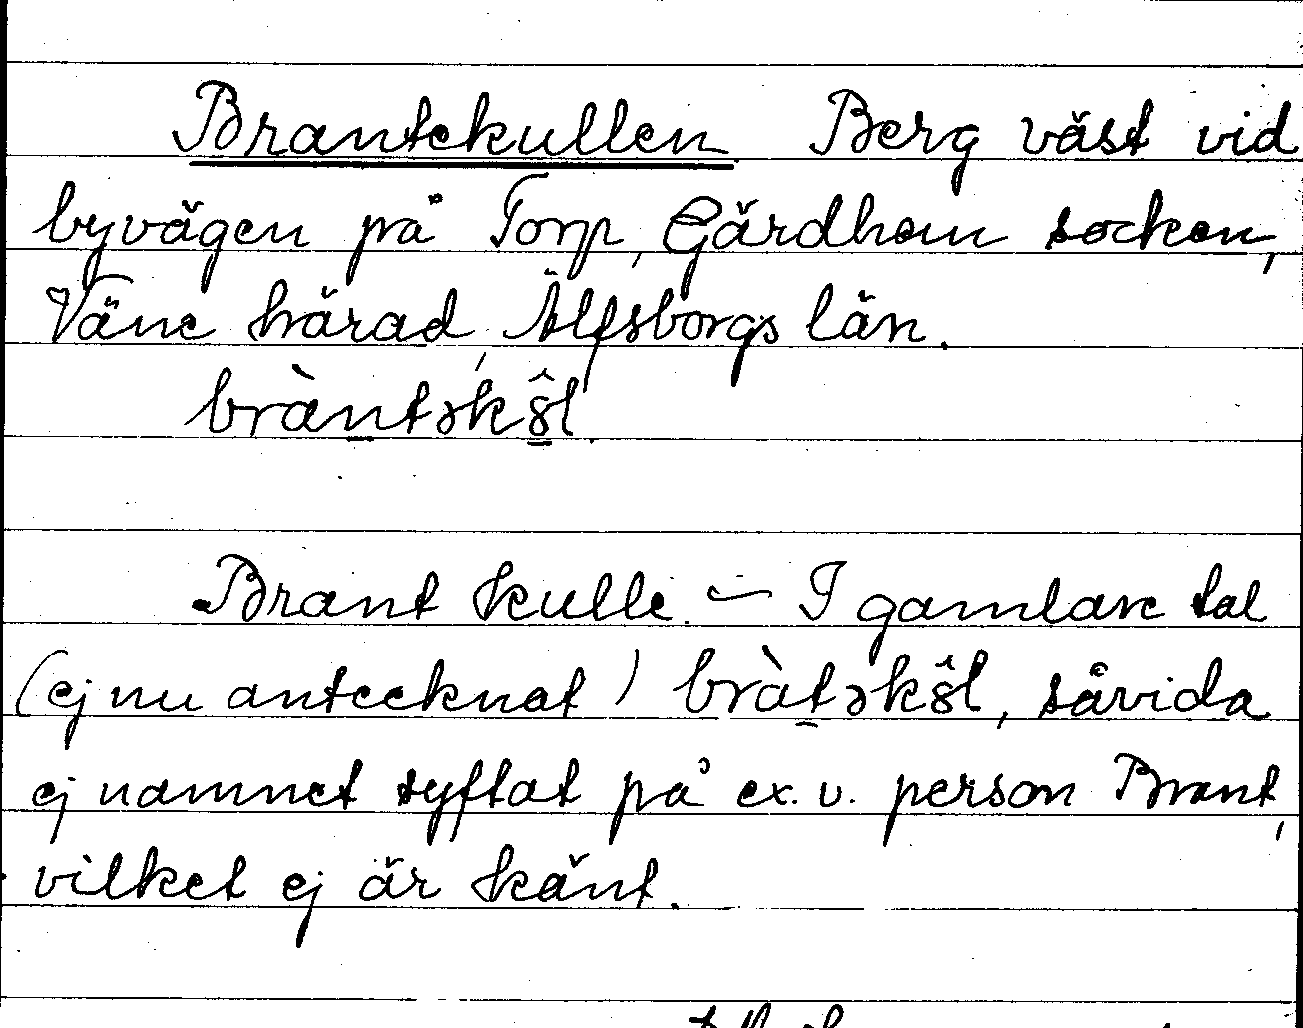 Brantekullen Berg väst vid
byvägen på Torp, Gärdhem socken,
Väne härad, Älfsborgs län.
bràntəkŏ̂l.
Brant kulle. – I gamlare tal
(ej nu antecknat) bràtəkŏ̂l, såvida
ej namnet syftat på ex. v. person Brant,
vilket ej är känt.